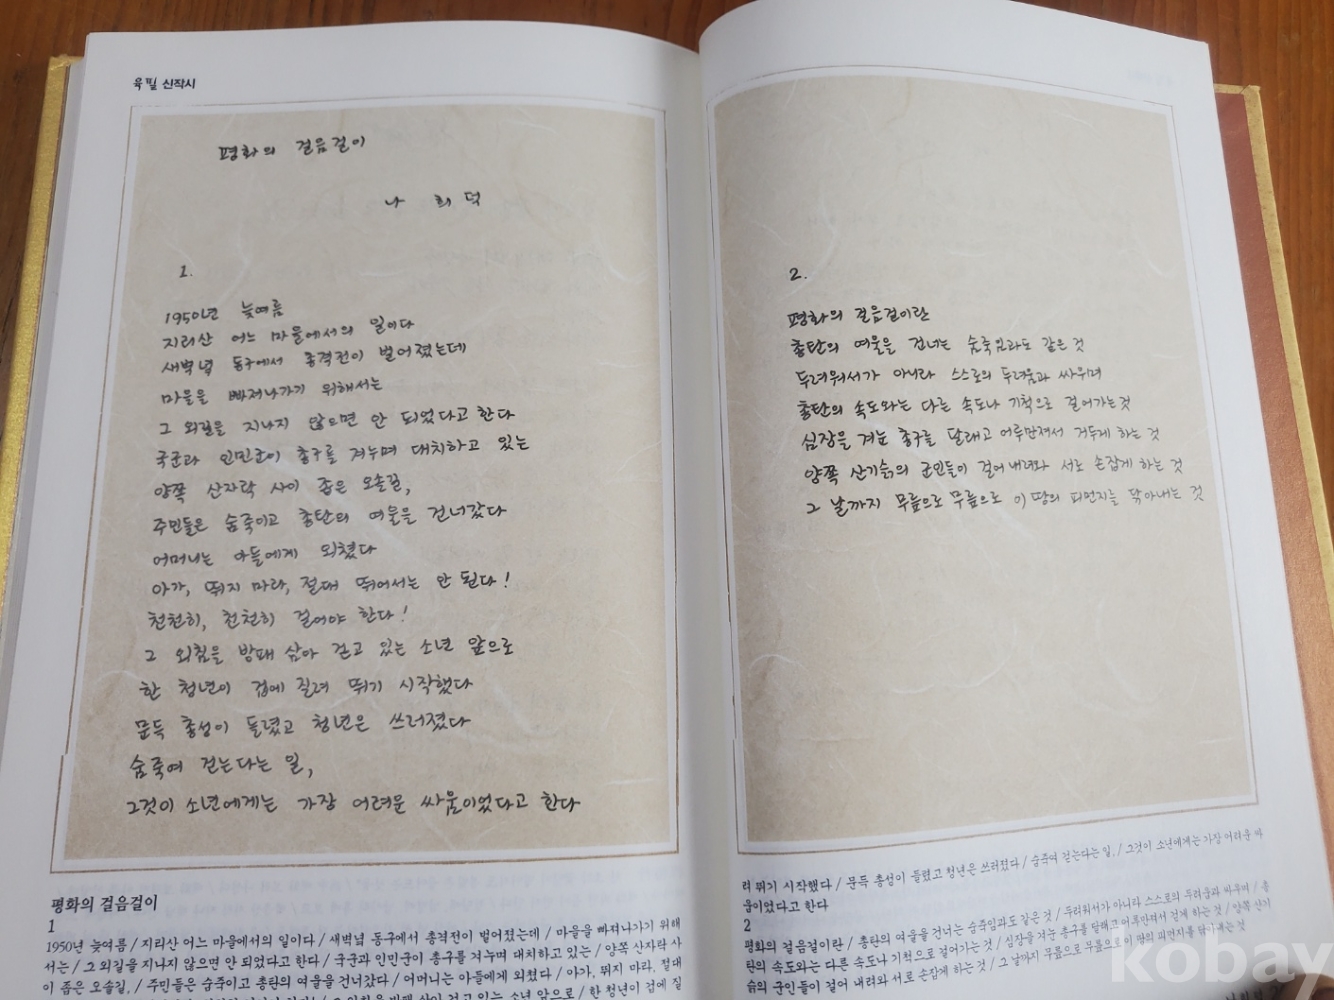 육필 신작시
평화의 걸음걸이
나 희 덕
1.
1950년 늦여름
지리산 어느 마을에서의 일이다
새벽녘 동구에서 총격전이 벌어졌는데
마을을 빠져나가기 위해서는
그 외길을 지나지 않으면 안 되었다고 한다
국군과 인민군이 총구를 겨누며 대치하고 있는
양쪽 산자락 사이 좁은 오솔길,
주민들은 숨죽이고 총탄의 여울을 건너갔다
어머니는 아들에게 외쳤다
아가, 뛰지 마라, 절대 뛰어서는 안 된다!
천천히, 천천히 걸어야 한다!
그 외침을 방패 삼아 걷고 있는 소년 앞으로
한 청년이 겁에 질려 뛰기 시작했다
문득 총성이 들렸고 청년은 쓰러졌다
숨죽여 걷는다는 일,
그것이 소년에게는 가장 어려운 싸움이었다고 한다
평화의 걸음걸이
1
1950년 늦여름 / 지리산 어느 마을에서의 일이다 / 새벽녘 동구에서 총격전이 벌어졌는데 / 마을을 빠져나가기 위해
서는 / 그 외길을 지나지 않으면 안 되었다고 한다 / 국군과 인민군이 총구를 겨누며 대치하고 있는 / 양쪽 산자락 사
이 좁은 오솔길, / 주민들은 숨죽이고 총탄의 여울을 건너갔다 / 어머니는 아들에게 외쳤다 / 아가, 뛰지 마라, 절대
그 외침을 방패 삼아 걷고 있는 소년 앞으로 / 한 청년이 겁에 질
2.
평화의 걸음걸이란
총탄의 여울을 건너는 숨죽임과도 같은 것
두려워서가 아니라 스스로의 두려움과 싸우며
총탄의 속도와는 다른 속도나 기척으로 걸어가는 것
심장을 겨눈 총구를 달래고 어루만져서 거두게 하는 것
양쪽 산기슭의 군인들이 걸어 내려와 서로 손잡게 하는 것
그 날까지 무릎으로 무릎으로 이 땅의 피먼지를 닦아내는 것
려 뛰기 시작했다 / 문득 총성이 들렸고 청년은 쓰러졌다 / 숨죽여 걷는다는 일, / 그것이 소년에게는 가장 어려운 싸
움이었다고 한다
2
평화의 걸음걸이란 / 총탄의 여울을 건너는 숨죽임과도 같은 것 / 두려워서가 아니라 스스로의 두려움과 싸우며 / 총
탄의 속도와는 다른 속도나 기척으로 걸어가는 것 / 심장을 겨눈 총구를 달래고 어루만져서 걷게 하는 것 / 양쪽 산기
슭의 군인들이 걸어 내려와 서로 손잡게 하는 것 / 그 날까지 무릎으로 무릎으로 이 땅의 피먼지를 닦아내는 것
kobay